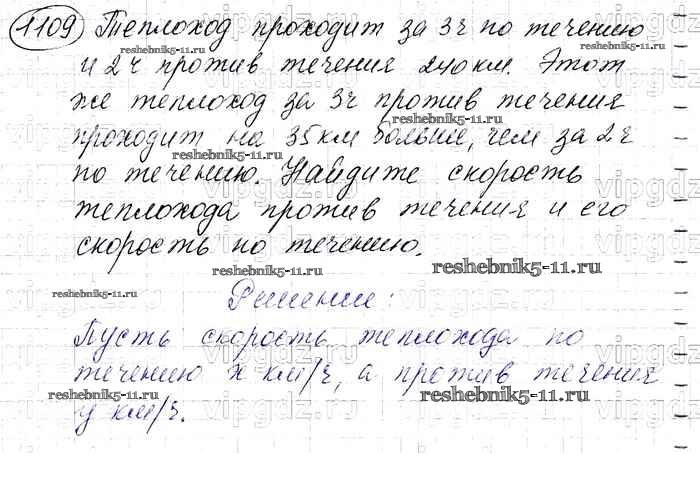 1109 Теплоход проходит за 3ч по течению
и 2ч против течения 240 км. Этот
же теплоход за 3ч против течения
проходит на 35км больше, чем за 2ч
по течению. Найдите скорость
теплохода против течения и его
скорость по течению.
Решение:
Пусть скорость теплохода по
течению x км/ч, а против течения
y км/ч.
reshebnik5-11.ru
reshebnik5-11.ru
reshebnik5-11.ru
reshebnik5-11.ru
reshebnik5-11.ru
reshebnik5-11.ru
reshebnik5-11.ru
reshebnik5-11.ru
vipgdz.ru